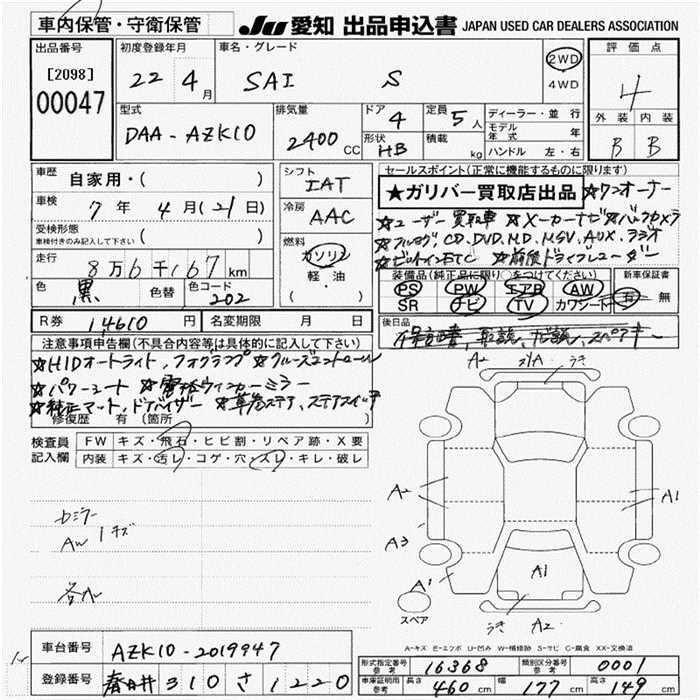 車内保管・守衛保管
JU 愛知 出品申込書 JAPAN USED CAR DEALERS ASSOCIATION
出品番号 初度登録年月 車名・グレード 評価点
[2098] 22 4月 SAI S 2WD 4
00047 4WD
型式 排気量 ドア 4 定員 5人 ディーラー・並行 外装 内装
DAA-AZK10 2400CC 形状 HB 積載 kg モデル年式 年 B B
ハンドル 左・右
車歴 自家用・( ) シフト セールスポイント(正常に機能するものに限ります)
IAT ★ガリバー買取店出品 ☆ワンオーナー
車検 7年 4月(21日) 冷房 ☆ユーザー買取車 ☆メーカーナビ☆バックカメラ
受検形態 AAC ☆フルセグ,CD,DVD,MD,MSV,AUX,ラジオ
車検付きのみ記入して下さい ( ) 燃料 ☆ビルトインETC ☆前後ドライブレコーダー
走行 8万6千167km ガソリン 装備品(純正品に限り○をつけてください) 新車保証書
軽・油 PS PW エアB AW 有・無
色 黒 色替 色コード 202 ( ) SR ナビ TV カワシート
R券 14610円 名変期限 月 日 後日品
注意事項申告欄(不具合内容等は具体的に記入して下さい) 保証書,取説,ナビ説,スペアキー
☆HIDオートライト,フォグランプ ☆クルーズコントロール
☆パワーシート ☆電格ウィンカーミラー
☆純正マット,ドアバイザー ☆革巻ステア,ステアスイッチ
修復歴 有(箇所 )
検査員 FW キズ・飛石・ヒビ割・リペア跡・X要
記入欄 内装 キズ・汚レ・コゲ・穴・スレ・キレ・破レ
A2 うき
A2 A1
ミラー
AW キズ
A3
A1 A1
スペア
うき A2
A-キズ E-エクボ U-凹み W-補修跡 S-サビ C-腐食 XX-交換済
車台番号 AZK10-2019947
形式指定番号 参考 16368 類別区分番号 参考 0001
登録番号 春日井 310 さ 1220
車庫証明用 参考 長さ 460cm 幅 177cm 高さ 149cm